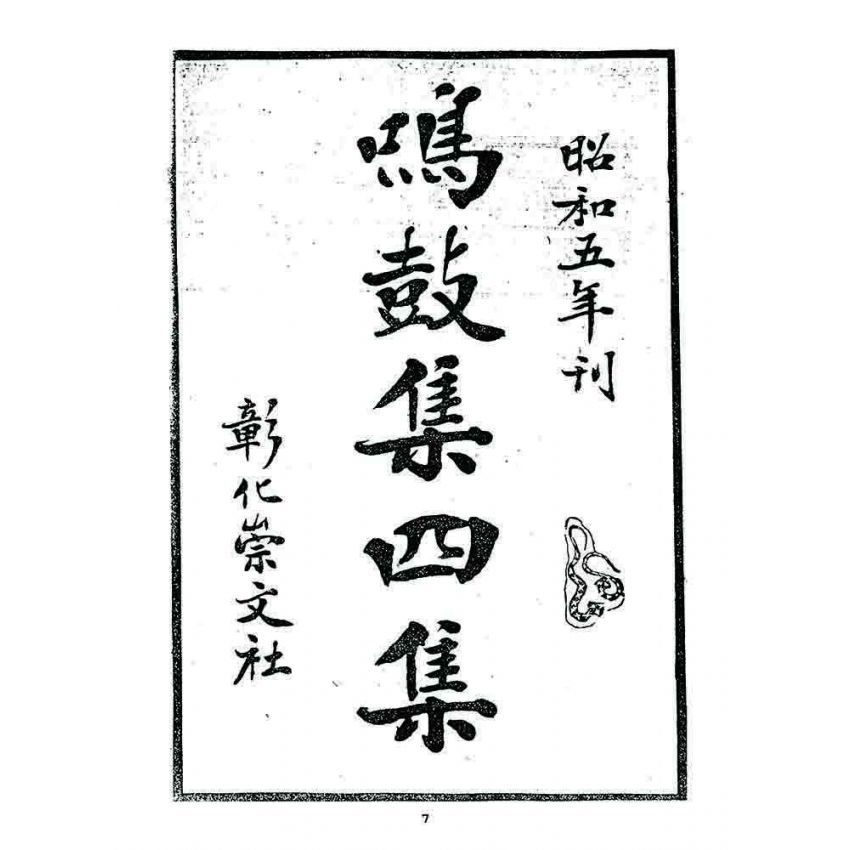 昭和五年刊
鳴鼓集四集
彰化崇文社
7